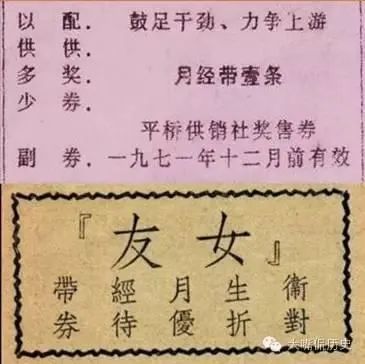 以 配. 鼓足干劲、力争上游
供 供.
多 奖. 月经带壹条
少 券.
平桥供销社奖售券
副 券. 一九七一年十二月前有效
『女友』
衞生月經帶
對折優待券
大嘴侃历史